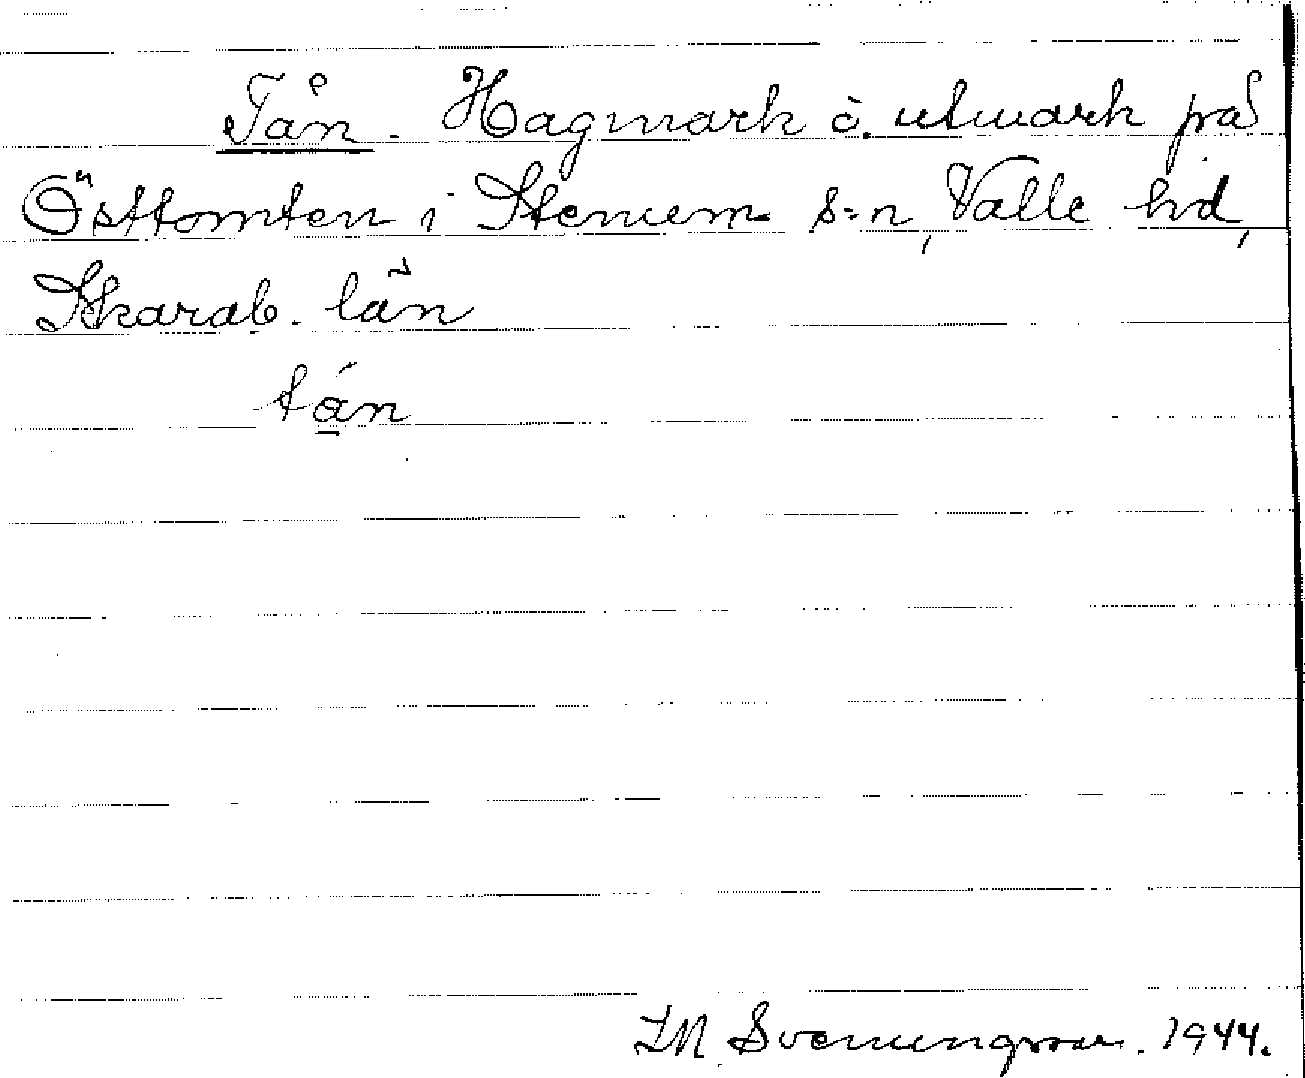 Tån. Hagmark o. utmark på
Östtomten i Stenum s:n, Valle hd,
Skarab. län
tån
Svenungsson. 1944.